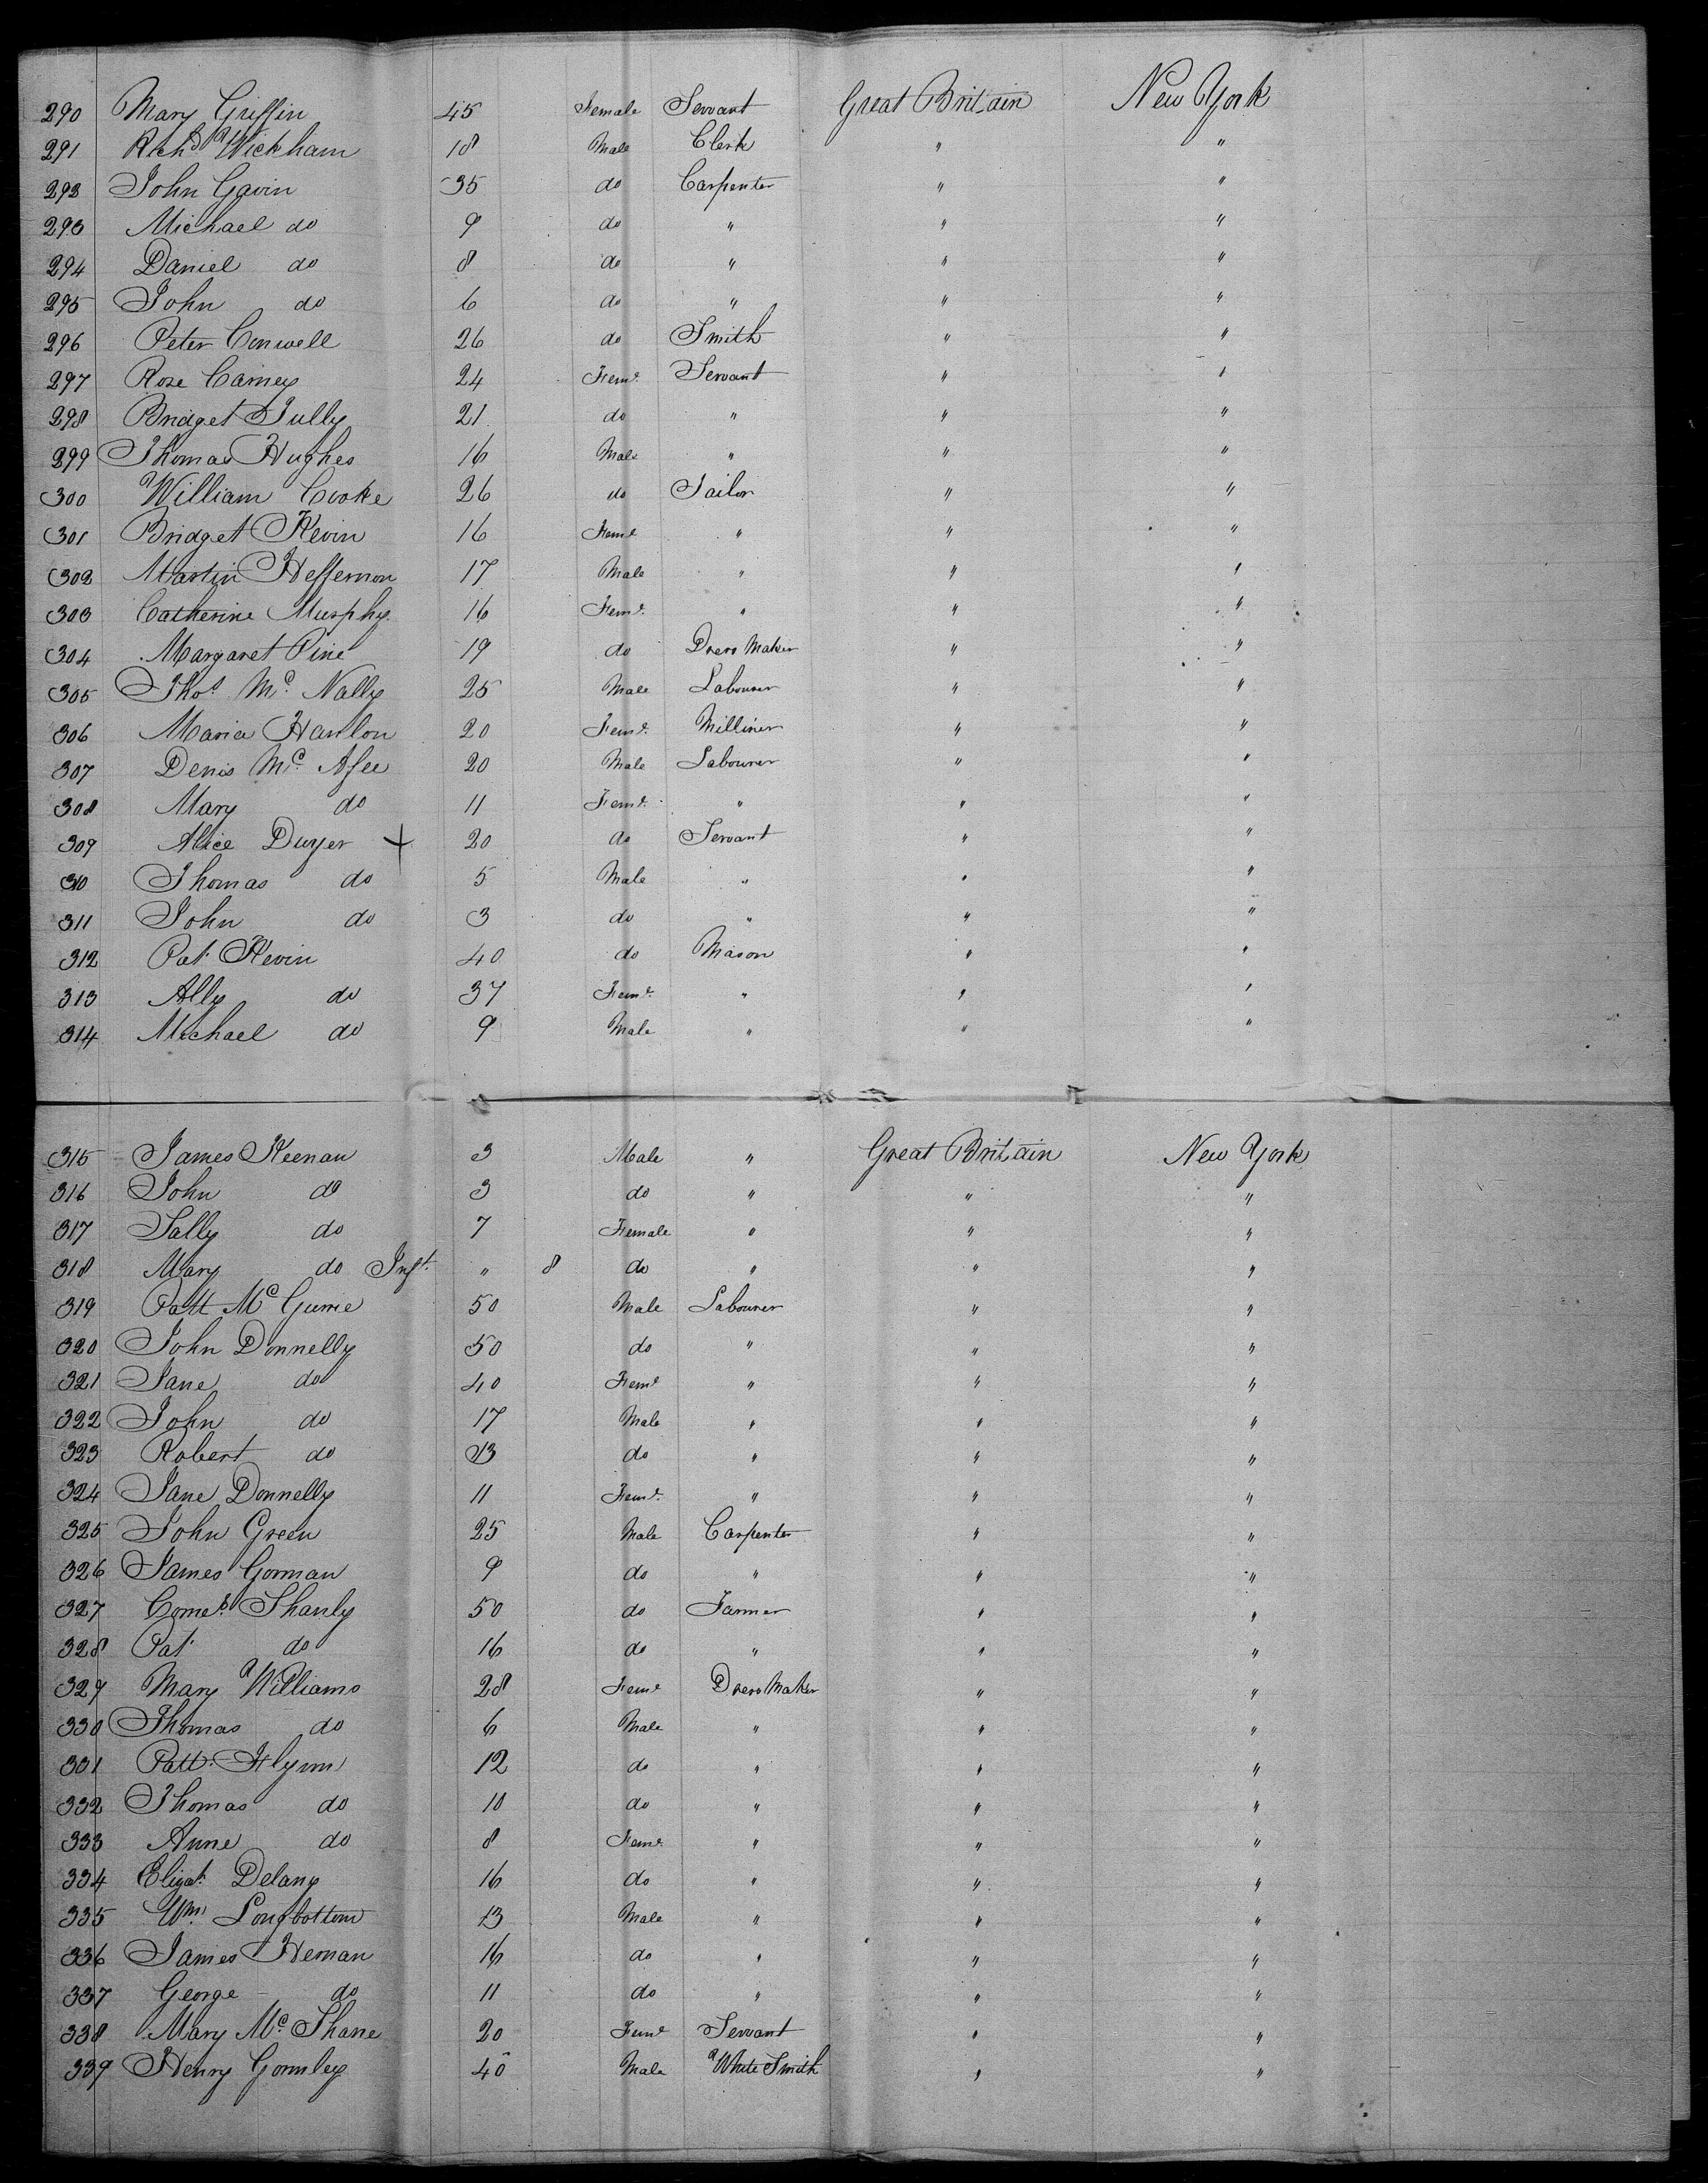 290 Mary Griffin 45 Female Servant Great Britain New York
291 Richd Wickham 18 Male Clerk " "
292 John Gavin 35 do Carpenter " "
293 Michael do 9 do " " "
294 Daniel do 8 do " " "
295 John do 6 do " " "
296 Peter Conwell 26 do Smith " "
297 Rose Carney 24 Feme. Servant " "
298 Bridget Tully 21 do " " "
299 Thomas Hughes 16 Male " " "
300 William Cooke 26 do Tailor " "
301 Bridget Kevin 16 Feme " " "
302 Martin Heffernon 17 Male " " "
303 Catherine Murphy 16 Feme. " " "
304 Margaret Pine 19 do Dress Maker " "
305 Thos. Mc. Nally 25 Male Labourer " "
306 Maria Hanlon 20 Feme. Milliner " "
307 Denis Mc. Afee 20 Male Labourer " "
308 Mary do 11 Feme. " " "
309 Alice Dwyer + 20 do Servant " "
310 Thomas do 5 Male " " "
311 John do 3 do " " "
312 Pat. Kevin 40 do Mason " "
313 Ally do 37 Feme. " " "
314 Michael do 9 Male " " "
315 James Keenan 3 Male " Great Britain New York
316 John do 3 do " " "
317 Sally do 7 Female " " "
318 Mary do Inft. " 8 do " " "
319 Patt Mc Gurrie 50 Male Labourer " "
320 John Donnelly 50 do " " "
321 Jane do 40 Feme " " "
322 John do 17 Male " " "
323 Robert do 13 do " " "
324 Jane Donnelly 11 Feme. " " "
325 John Green 25 Male Carpenter " "
326 James Gorman 9 do " " "
327 Corns. Shanly 50 do Farmer " "
328 Pat. do 16 do " " "
329 Mary Williams 28 Feme Dress Maker " "
330 Thomas do 6 Male " " "
331 Patt. Flynn 12 do " " "
332 Thomas do 10 do " " "
333 Anne do 8 Feme. " " "
334 Elizat. Delany 16 do " " "
335 Wm. Longbottom 13 Male " " "
336 James Hernan 16 do " " "
337 George do 11 do " " "
338 Mary Mc. Shane 20 Feme Servant " "
339 Henry Gormley 40 Male White Smith " "